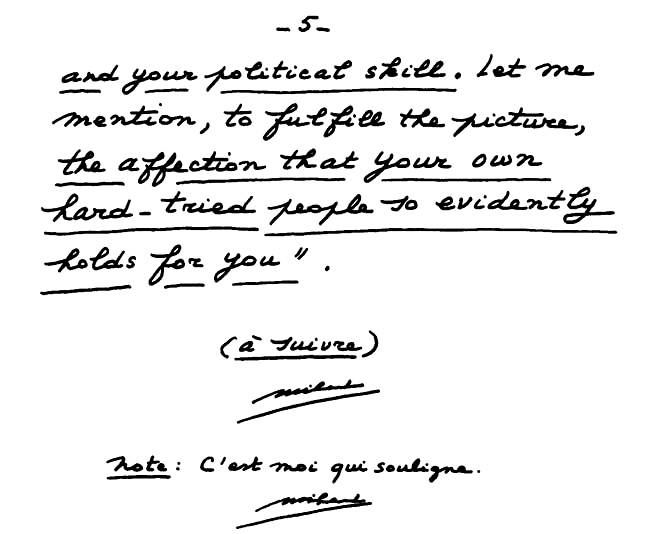 -5-
and your political skill. Let me
mention, to fulfill the picture,
the affection that your own
hard-tried people so evidently
holds for you".
(à suivre)
Note: C'est moi qui souligne.